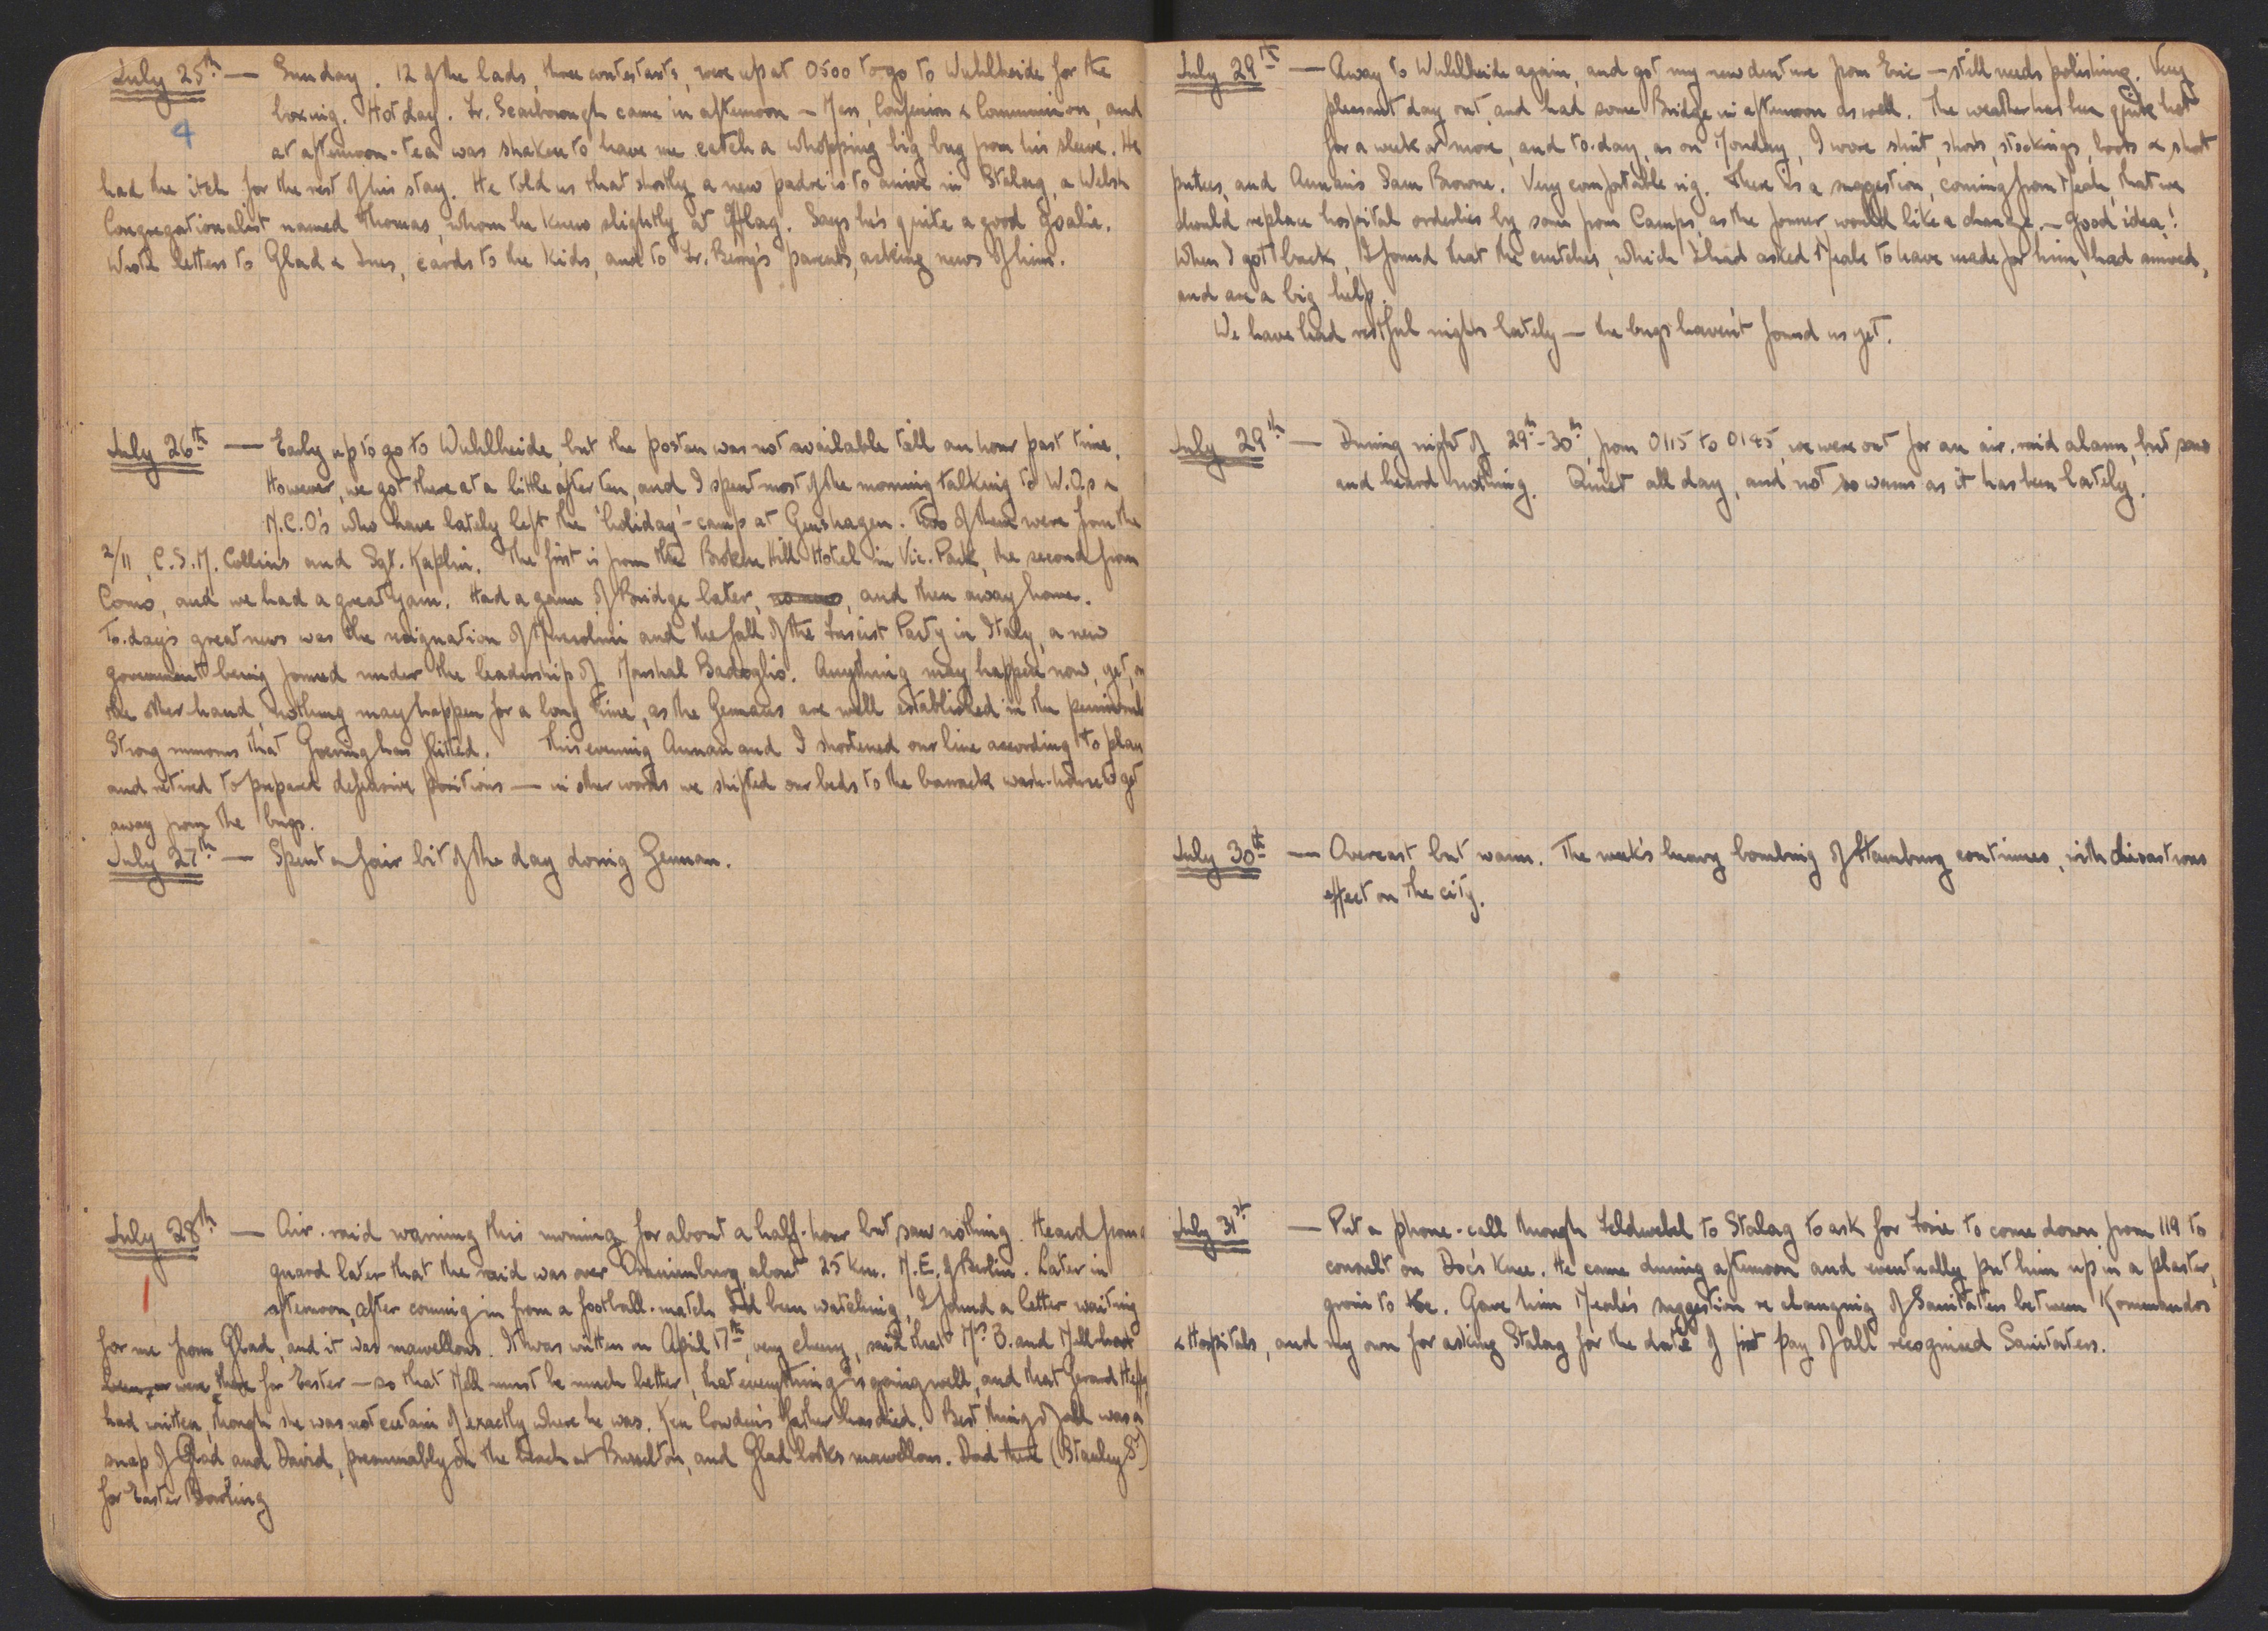 July 25th — Sunday. 12 of the lads, three contestants, were up at 0500 to go to Wuhlheide for the
4
boxing. Hot day. Fr. Scarborough came in afternoon – Mass, Confession & Communion, and
at afternoon-tea was shaken to have me catch a whopping big bug from his sleeve. He
had the itch for the rest of his stay. He told us that shortly a new padre is to arrive in Stalag, a Welsh
Congregationalist named Thomas, whom he knew slightly at Oflag. Says he's quite a good goalie.
Wrote letters to Glad & Ines, cards to the kids, and to Fr. Berry's parents, asking news of him.
July 26th — Early up to go to Wuhlheide, but the posten was not available till an hour past time.
However, we got there at a little after ten, and I spent most of the morning talking to W.O.s &
N.C.O's who have lately left the 'holiday'-camp at Genshagen. Two of them were from the
2/11, C.S.M. Collins and Sgt. Kaplin. The first is from the Broken Hill Hotel in Vic. Park, the second from
Como, and we had a great yarn. Had a game of Bridge later, and then away home.
To-day's great news was the resignation of Mussolini and the fall of the Fascist Party in Italy, a new
government being formed under the leadership of Marshal Badoglio. Anything may happen now, yet, on
the other hand, nothing may happen for a long time, as the Germans are well established in the peninsula
Strong rumours that Goering has flitted. This evening Annan and I shortened our line according to plan
and retired to prepared defensive positions — in other words we shifted our beds to the barrack wash-house to get
away from the bugs.
July 27th — Spent a fair bit of the day doing German.
July 28th — Air-raid warning this morning for about a half-hour but saw nothing. Heard from a
1
guard later that the raid was over Oranienburg, about 25 km. N.E. of Berlin. Later in
afternoon, after coming in from a football-match I'd been watching, I found a letter waiting
for me from Glad, and it was marvellous. It was written on April 17th, very cheery, said that Mrs B. and Nell had
been, or were there for Easter — so that Nell must be much better, that everything is going well, and that Gerard
had written, though she was not certain of exactly where he was. Ken Cowden's father has died. Best thing of all was a
snap of Glad and David, presumably on the beach at Busselton, and Glad looks marvellous. Dad there (Stanley St)
for Easter Bowling
July 29th — Away to Wuhlheide again, and got my new denture from Eric — still needs polishing. Very
pleasant day out, and had some Bridge in afternoon as well. The weather has been quite hot
for a week or more, and to-day, as on Monday, I wore shirt, shorts, stockings, boots & short
puttees, and Annan's Sam Browne. Very comfortable rig. There is a suggestion, coming from Neale, that we
should replace hospital orderlies by some from Camps, as the former would like a change. — Good idea!
When I got back, I found that the crutches, which I had asked Neale to have made for him, had arrived,
and are a big help.
We have had restful nights lately — the bugs haven't found us yet.
July 29th — During night of 29th–30th, from 0115 to 0145, we were out for an air-raid alarm, but saw
and heard nothing. Quiet all day, and not so warm as it has been lately.
July 30th — Overcast but warm. The week's heavy bombing of Hamburg continues, with disastrous
effect on the city.
July 31st — Put a phone-call through Feldwebel to Stalag to ask for to come down from 119 to
consult on Doc's knee. He came during afternoon and eventually put him up in a plaster,
groin to toe. Gave him Neale's suggestion re changing of Sanitaters between Kommandos
& Hospitals, and my own for asking Stalag for the date of first pay of all recognised Sanitaters.